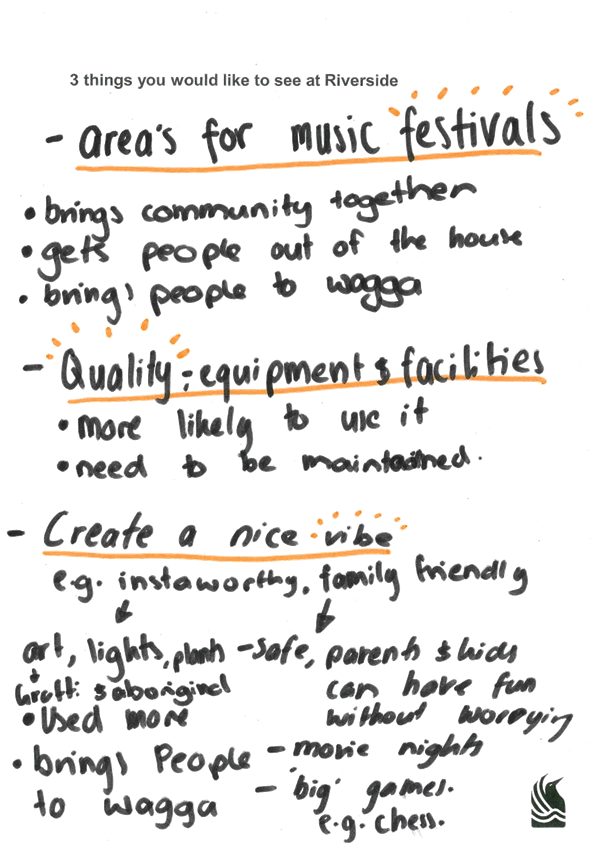 3 things you would like to see at Riverside
- area's for music festivals
• brings community together
• gets people out of the house
• brings people to wagga
- Quality : equipment & facilities
• more likely to use it
• need to be maintained.
- Create a nice vibe
e.g. instaworthy, family friendly
art, lights, plants - safe, parents & kids
Graffi & aboriginal can have fun
• Used more without worrying
• brings People - movie nights
to wagga - 'big' games.
e.g. chess.